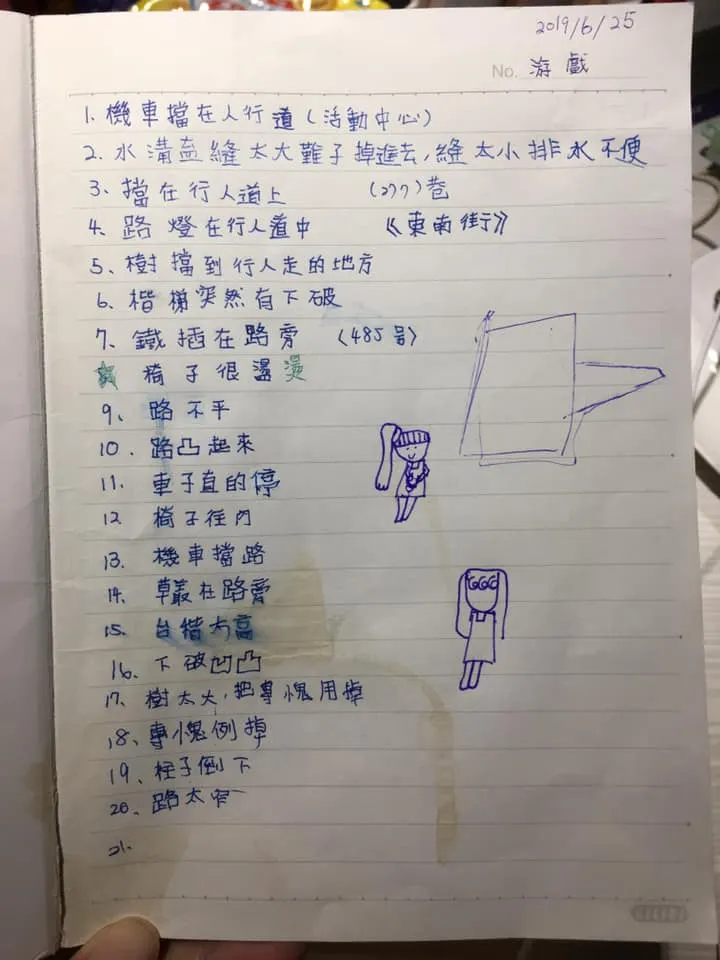 2019/6/25
No. 游戲
1. 機車擋在人行道(活動中心)
2. 水溝蓋縫太大難子掉進去,縫太小排水不便
3、擋在行人道上 (277)巷
4、路燈在行人道中 《東南街》
5、樹擋到行人走的地方
6、楷梯突然有下破
7、鐵插在路旁 〈485号〉
椅子很燙
9、路不平
10.路凸起來
11.車子直的停
12 椅子往內
13.機車擋路
14.草叢在路旁
15.台楷太高
16.下破凹凸
17.樹太大,把專愧用掉
18、專愧倒掉
19、柱子倒下
20、路太窄
21.